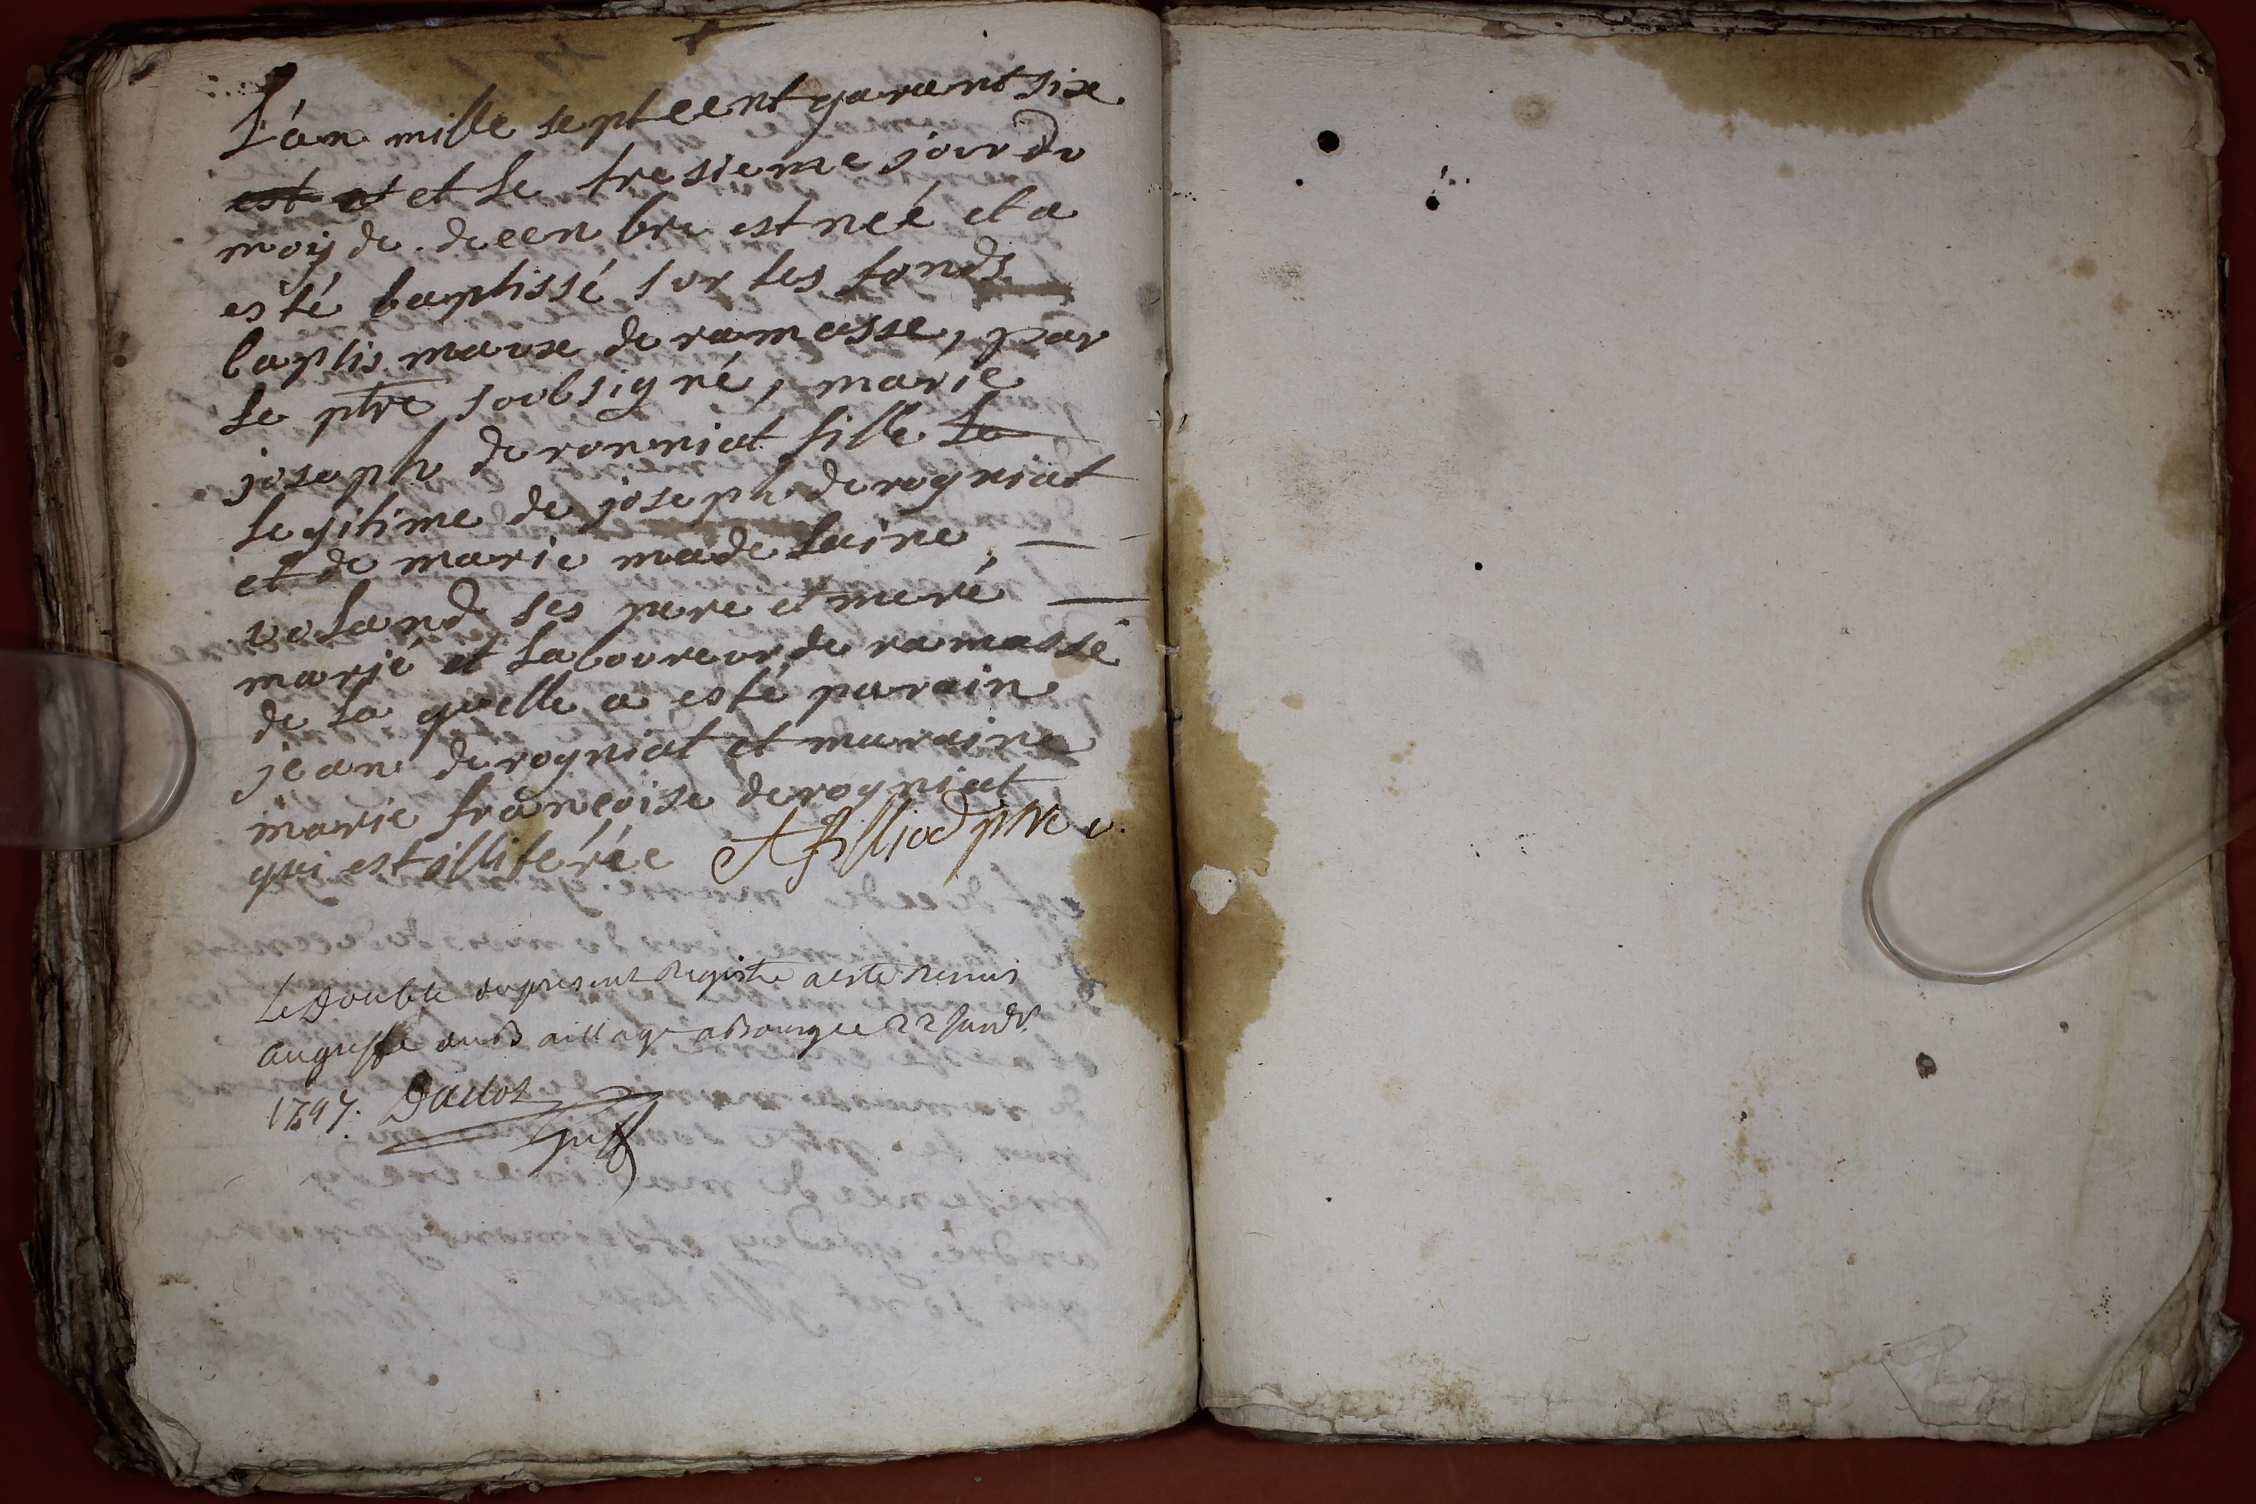 L'an mille sept cent quarant six
est et et le tresieme jour du
mois de decenbre est neé et a
esté baptissé sur les fonds
baptismaux de ramasse, par
le ptre soubsigné, marie
joseph deronniat fille la
legitime de joseph derogniat
et de marie madelaine
voland ses pere et meré
marié et laboureur de ramasse
de la quelle a esté parain
jean derogniat et maraine
marie françoise derogniat
qui est illiterée Billiod ptre c.
Le Double du present Registre a esté Remis
au greffe du Bailliage a Bourg ce 22 Janvr
1747. Duclos
greff